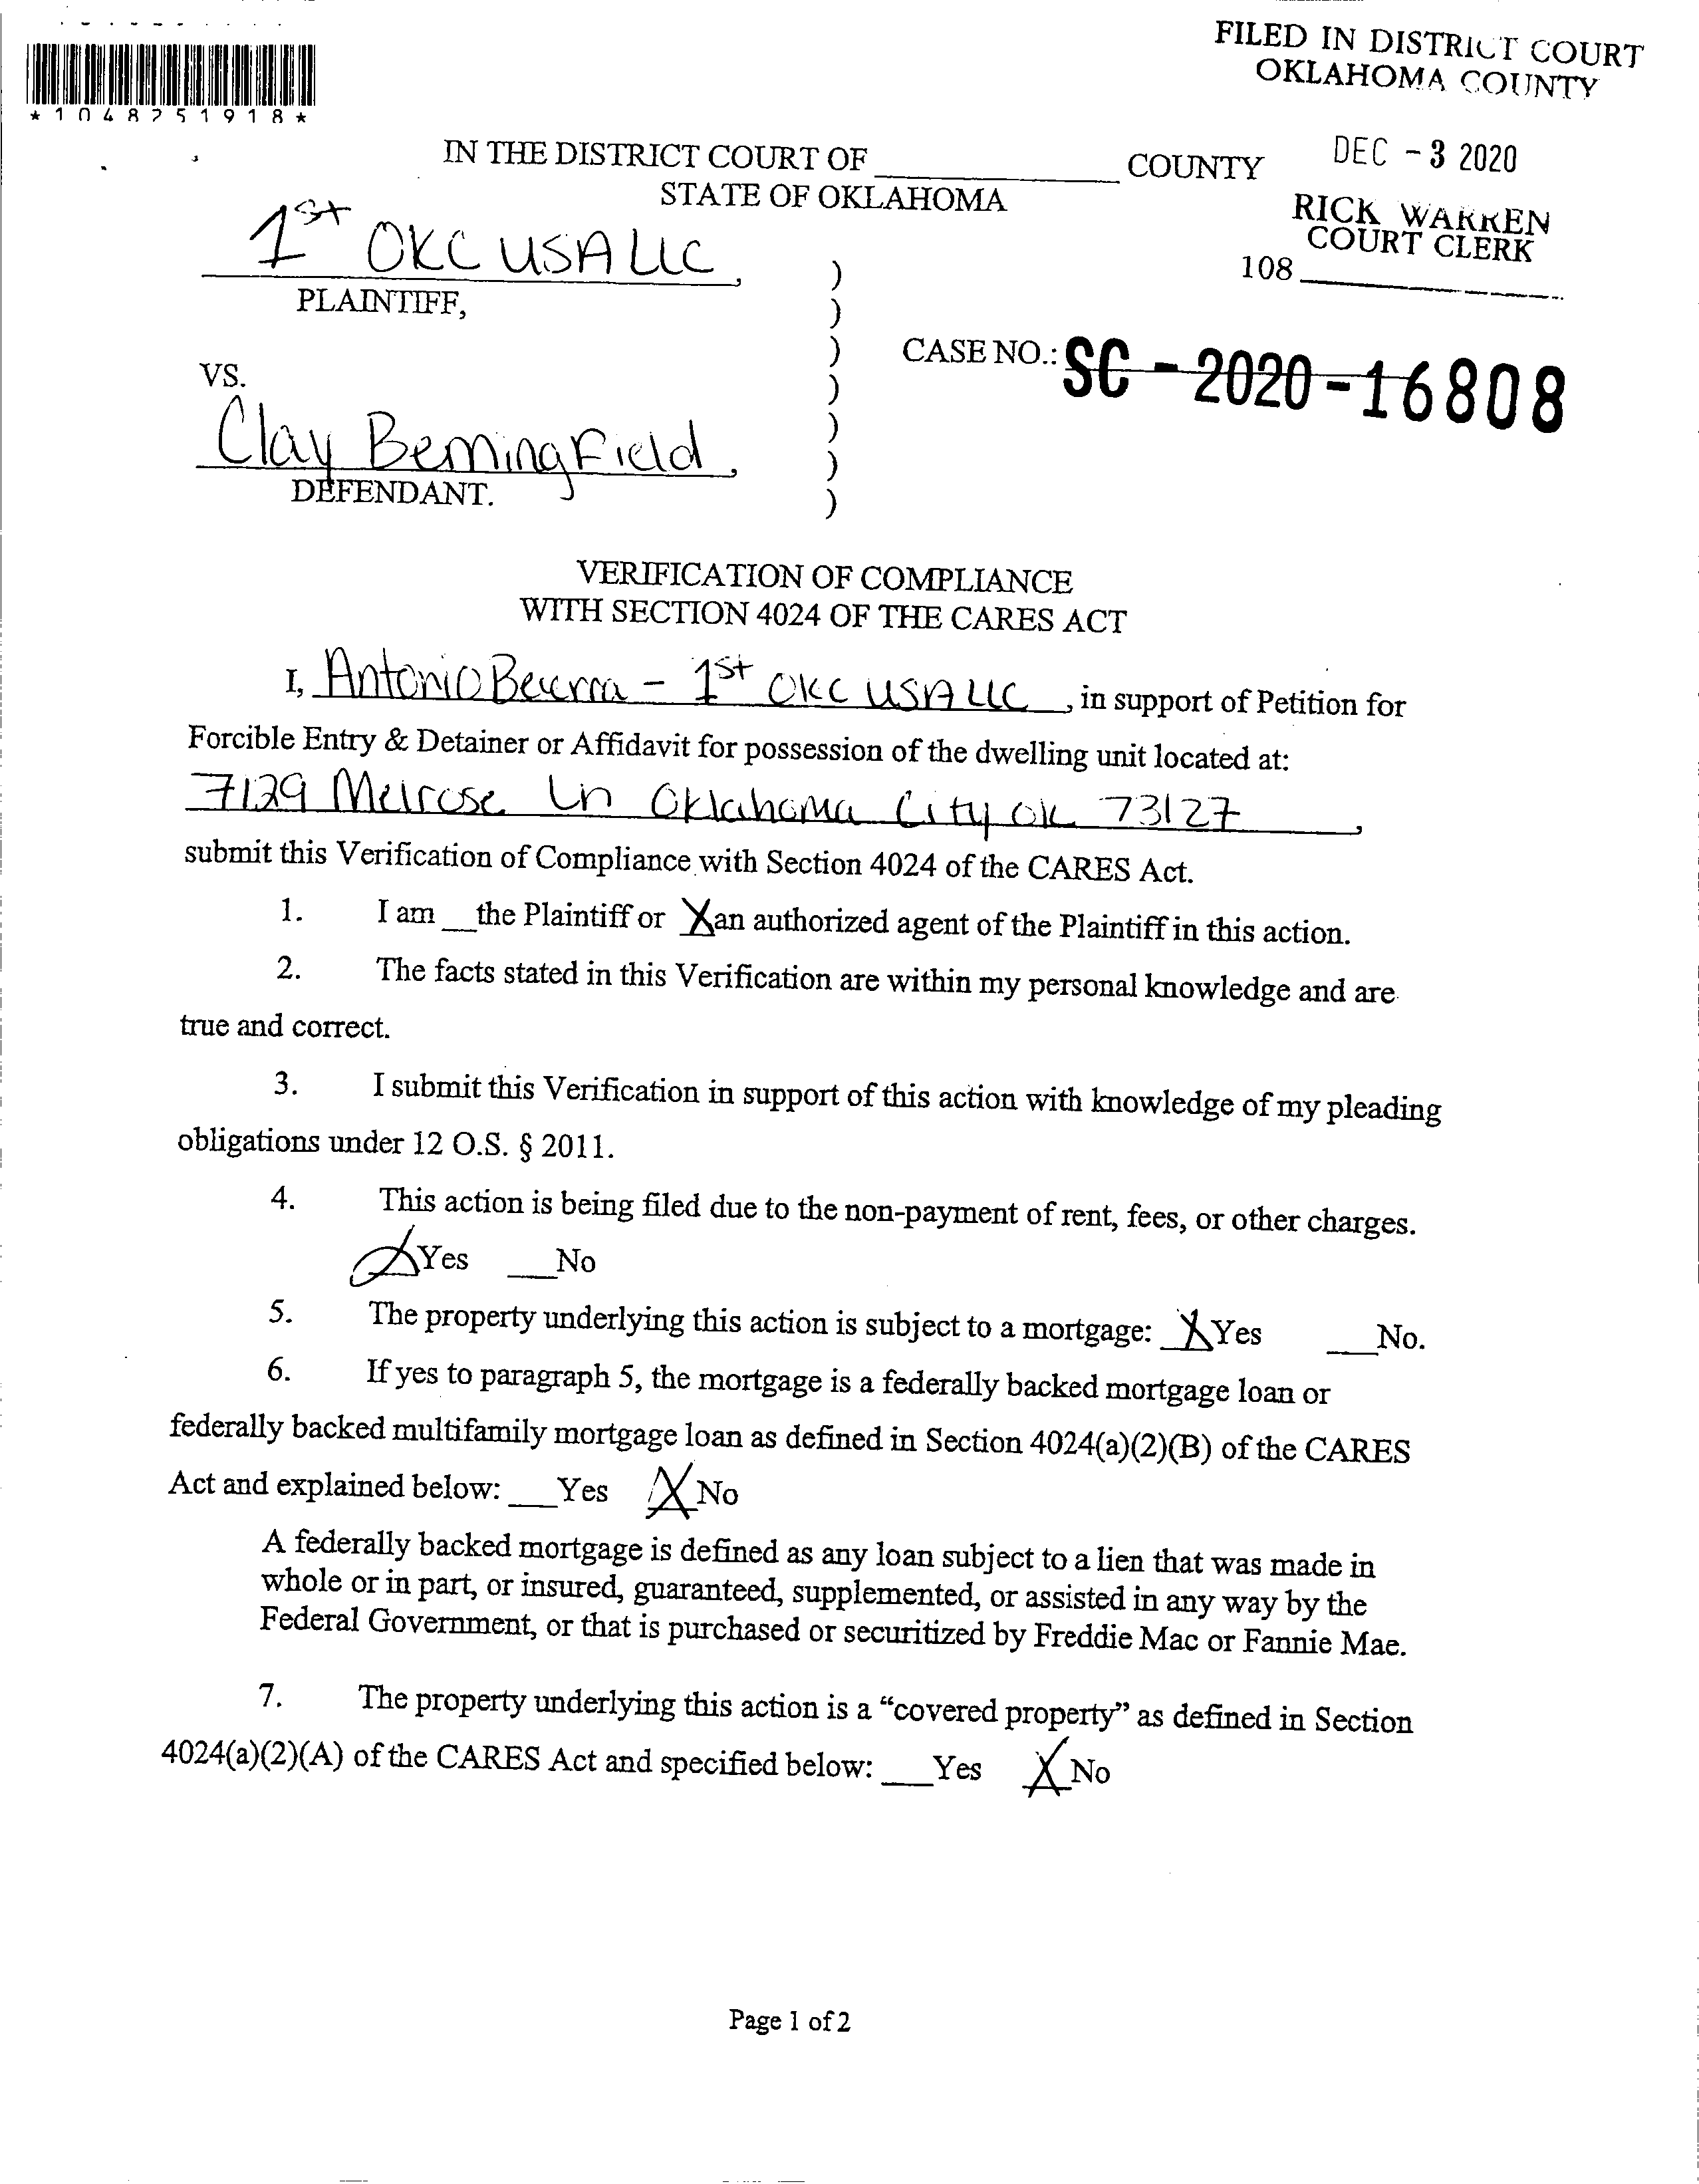 FILED IN DISTRICT COURT
OKLAHOMA COUNTY
*1048251918*
DEC - 3 2020
IN THE DISTRICT COURT OF ____________ COUNTY
STATE OF OKLAHOMA
RICK WARREN
COURT CLERK
108
1st OKC USA LLC,
PLAINTIFF,
CASE NO.: SC - 2020 - 16808
VS.
Clay BemingField,
DEFENDANT.
VERIFICATION OF COMPLIANCE
WITH SECTION 4024 OF THE CARES ACT
I, Antonio Becerra - 1st OKC USA LLC, in support of Petition for
Forcible Entry & Detainer or Affidavit for possession of the dwelling unit located at:
7129 Melrose Ln Oklahoma City OK 73127,
submit this Verification of Compliance with Section 4024 of the CARES Act.
1. I am __the Plaintiff or X an authorized agent of the Plaintiff in this action.
2. The facts stated in this Verification are within my personal knowledge and are
true and correct.
3. I submit this Verification in support of this action with knowledge of my pleading
obligations under 12 O.S. § 2011.
4. This action is being filed due to the non-payment of rent, fees, or other charges.
X Yes ___No
5. The property underlying this action is subject to a mortgage: X Yes ___No.
6. If yes to paragraph 5, the mortgage is a federally backed mortgage loan or
federally backed multifamily mortgage loan as defined in Section 4024(a)(2)(B) of the CARES
Act and explained below: ___Yes X No
A federally backed mortgage is defined as any loan subject to a lien that was made in
whole or in part, or insured, guaranteed, supplemented, or assisted in any way by the
Federal Government, or that is purchased or securitized by Freddie Mac or Fannie Mae.
7. The property underlying this action is a “covered property” as defined in Section
4024(a)(2)(A) of the CARES Act and specified below: ___Yes X No
Page 1 of 2